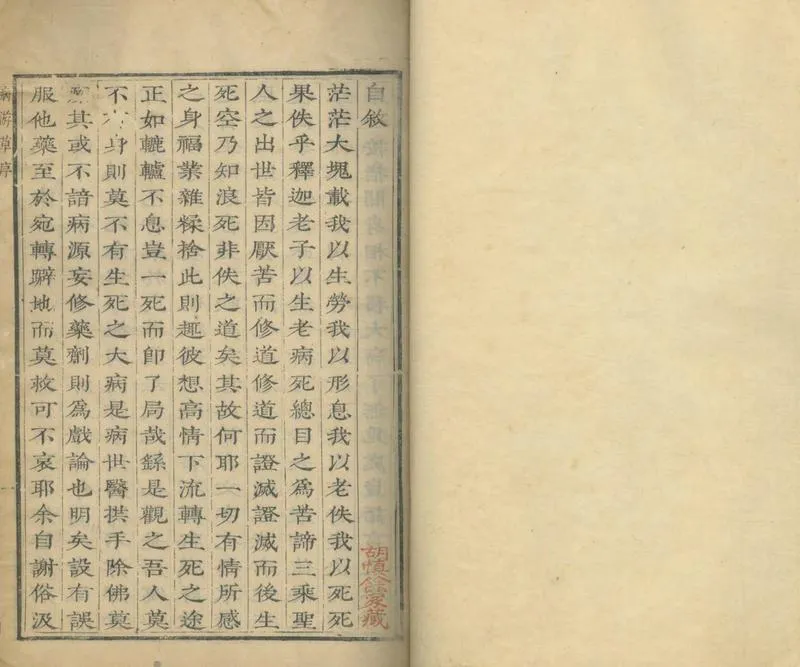 自敘
茫茫大塊載我以生勞我以形息我以老佚我以死死
果佚乎釋迦老子以生老病死總目之爲苦諦三乘聖
人之出世皆因厭苦而修道修道而證滅證滅而後生
死空乃知浪死非佚之道矣其故何耶一切有情所感
之身福業雜糅捨此則趣彼想高情下流轉生死之途
正如轆轤不息豈一死而卽了局哉繇是觀之吾人莫
不身則莫不有生死之大病是病世醫拱手除佛莫
其或不諳病源妄修藥劑則爲戲論也明矣設有誤
服他藥至於宛轉躃地而莫救可不哀耶余自謝俗汲
草序
胡慎家藏